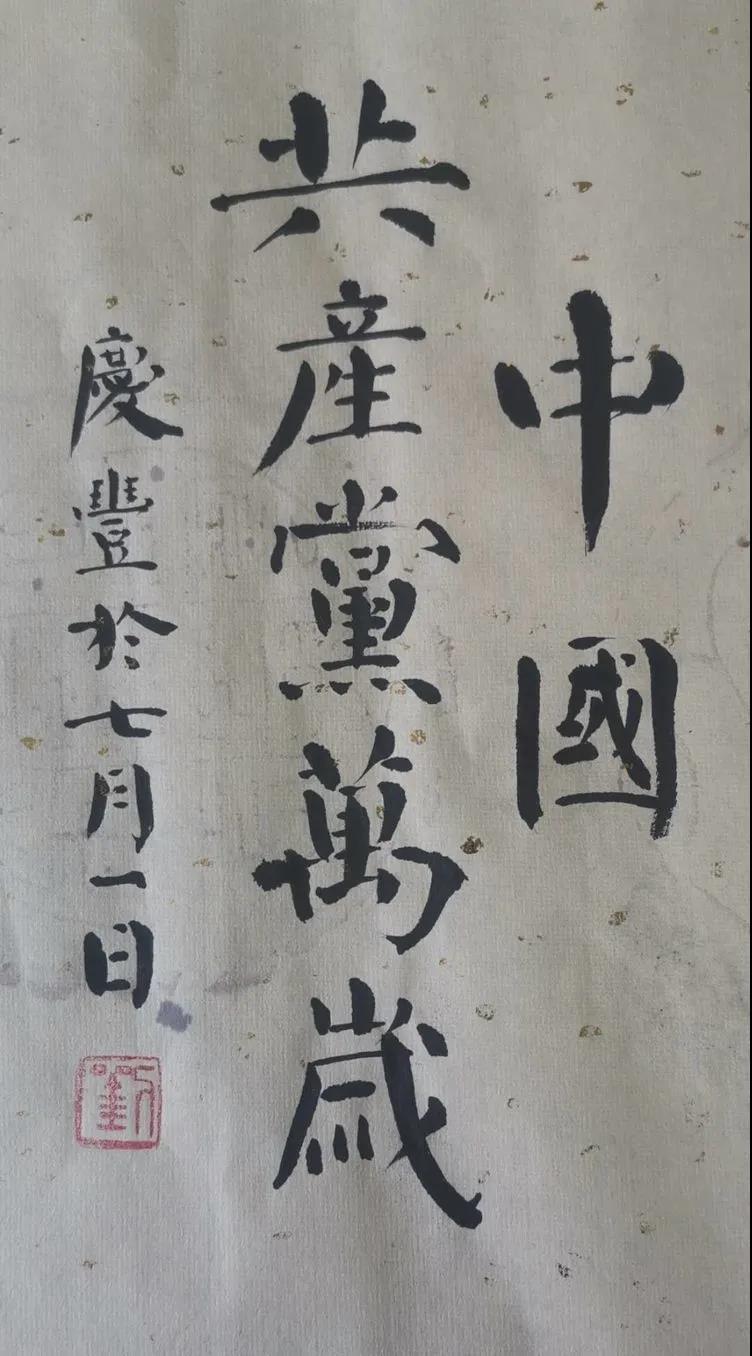 中國
共產黨萬歲
慶豐於七月一日
劉